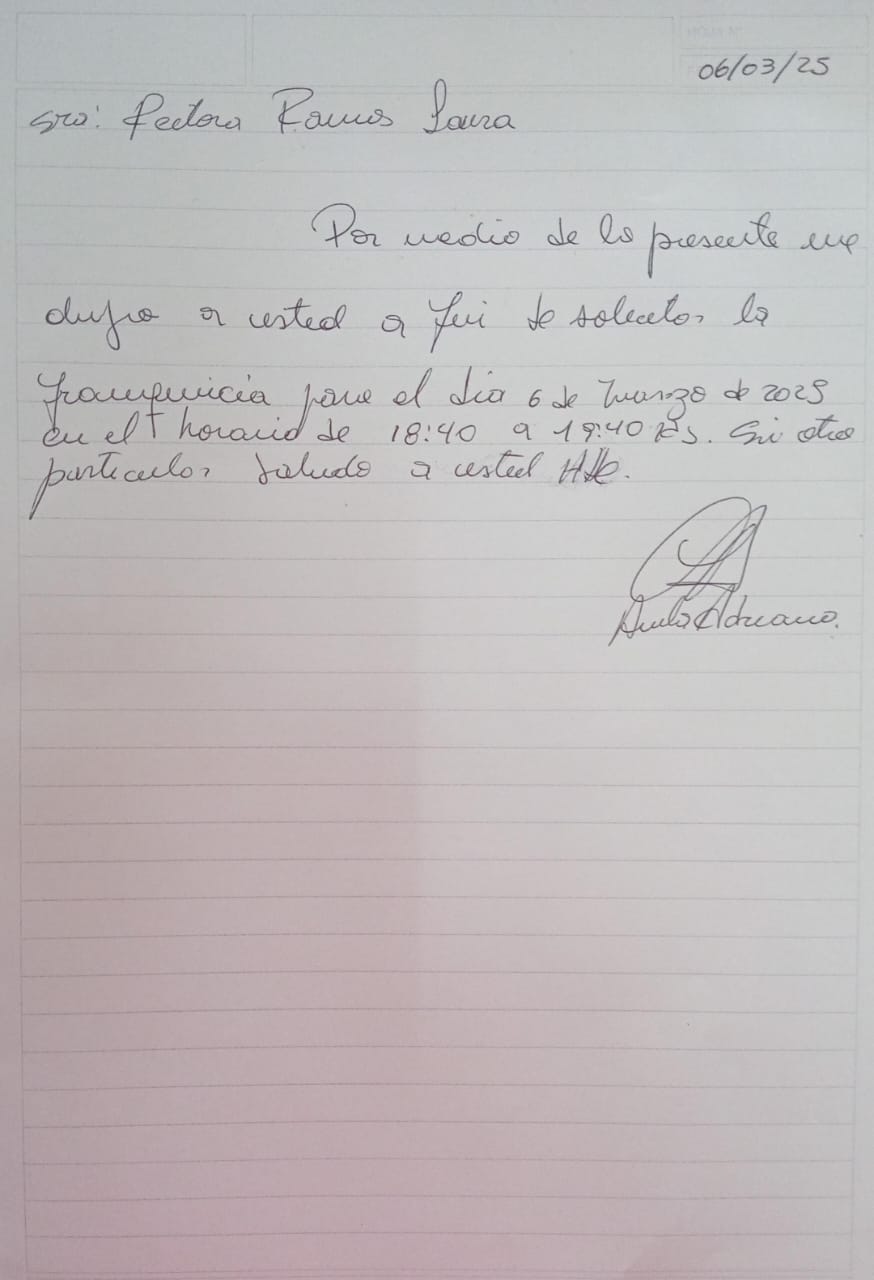 06/03/25
Sra: Rectora Ramos Laura
Por medio de la presente me
dirijo a usted a fin de solicitar la
franquicia para el día 6 de marzo de 2025
en el horario de 18:40 a 19:40 hs. Sin otro
particular saludo a usted Atte.
Adriano.